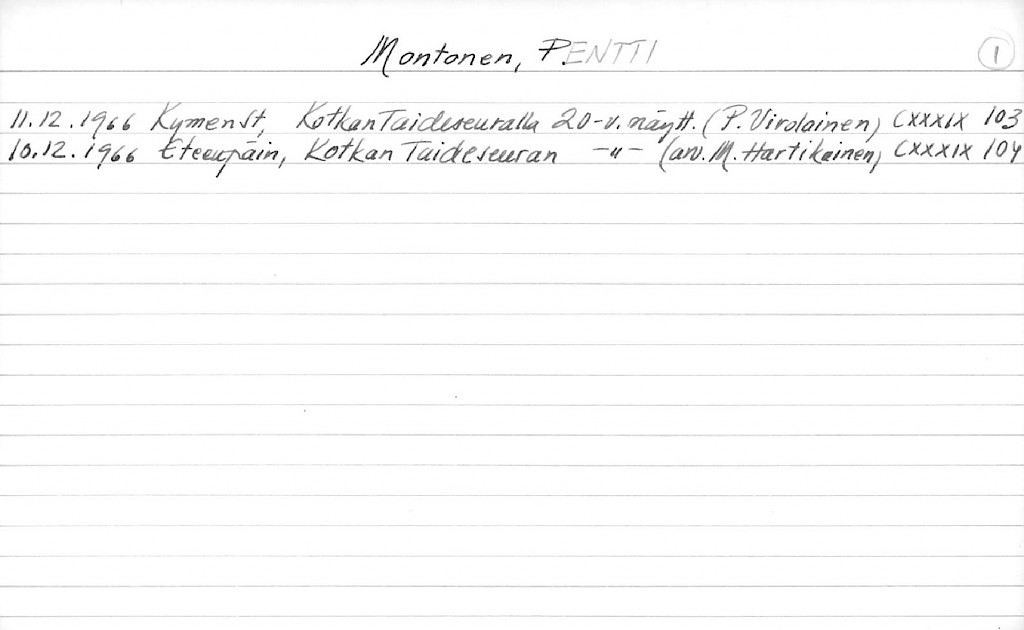 Montonen, PENTTI 1
11.12.1966 Kymenst, Kotkan Taideseuralla 20-v. näytt. (P. Virolainen) CXXXIX 103
10.12.1966 Eteenpäin, Kotkan Taideseuran –"– (arv. M. Hartikainen) CXXXIX 104